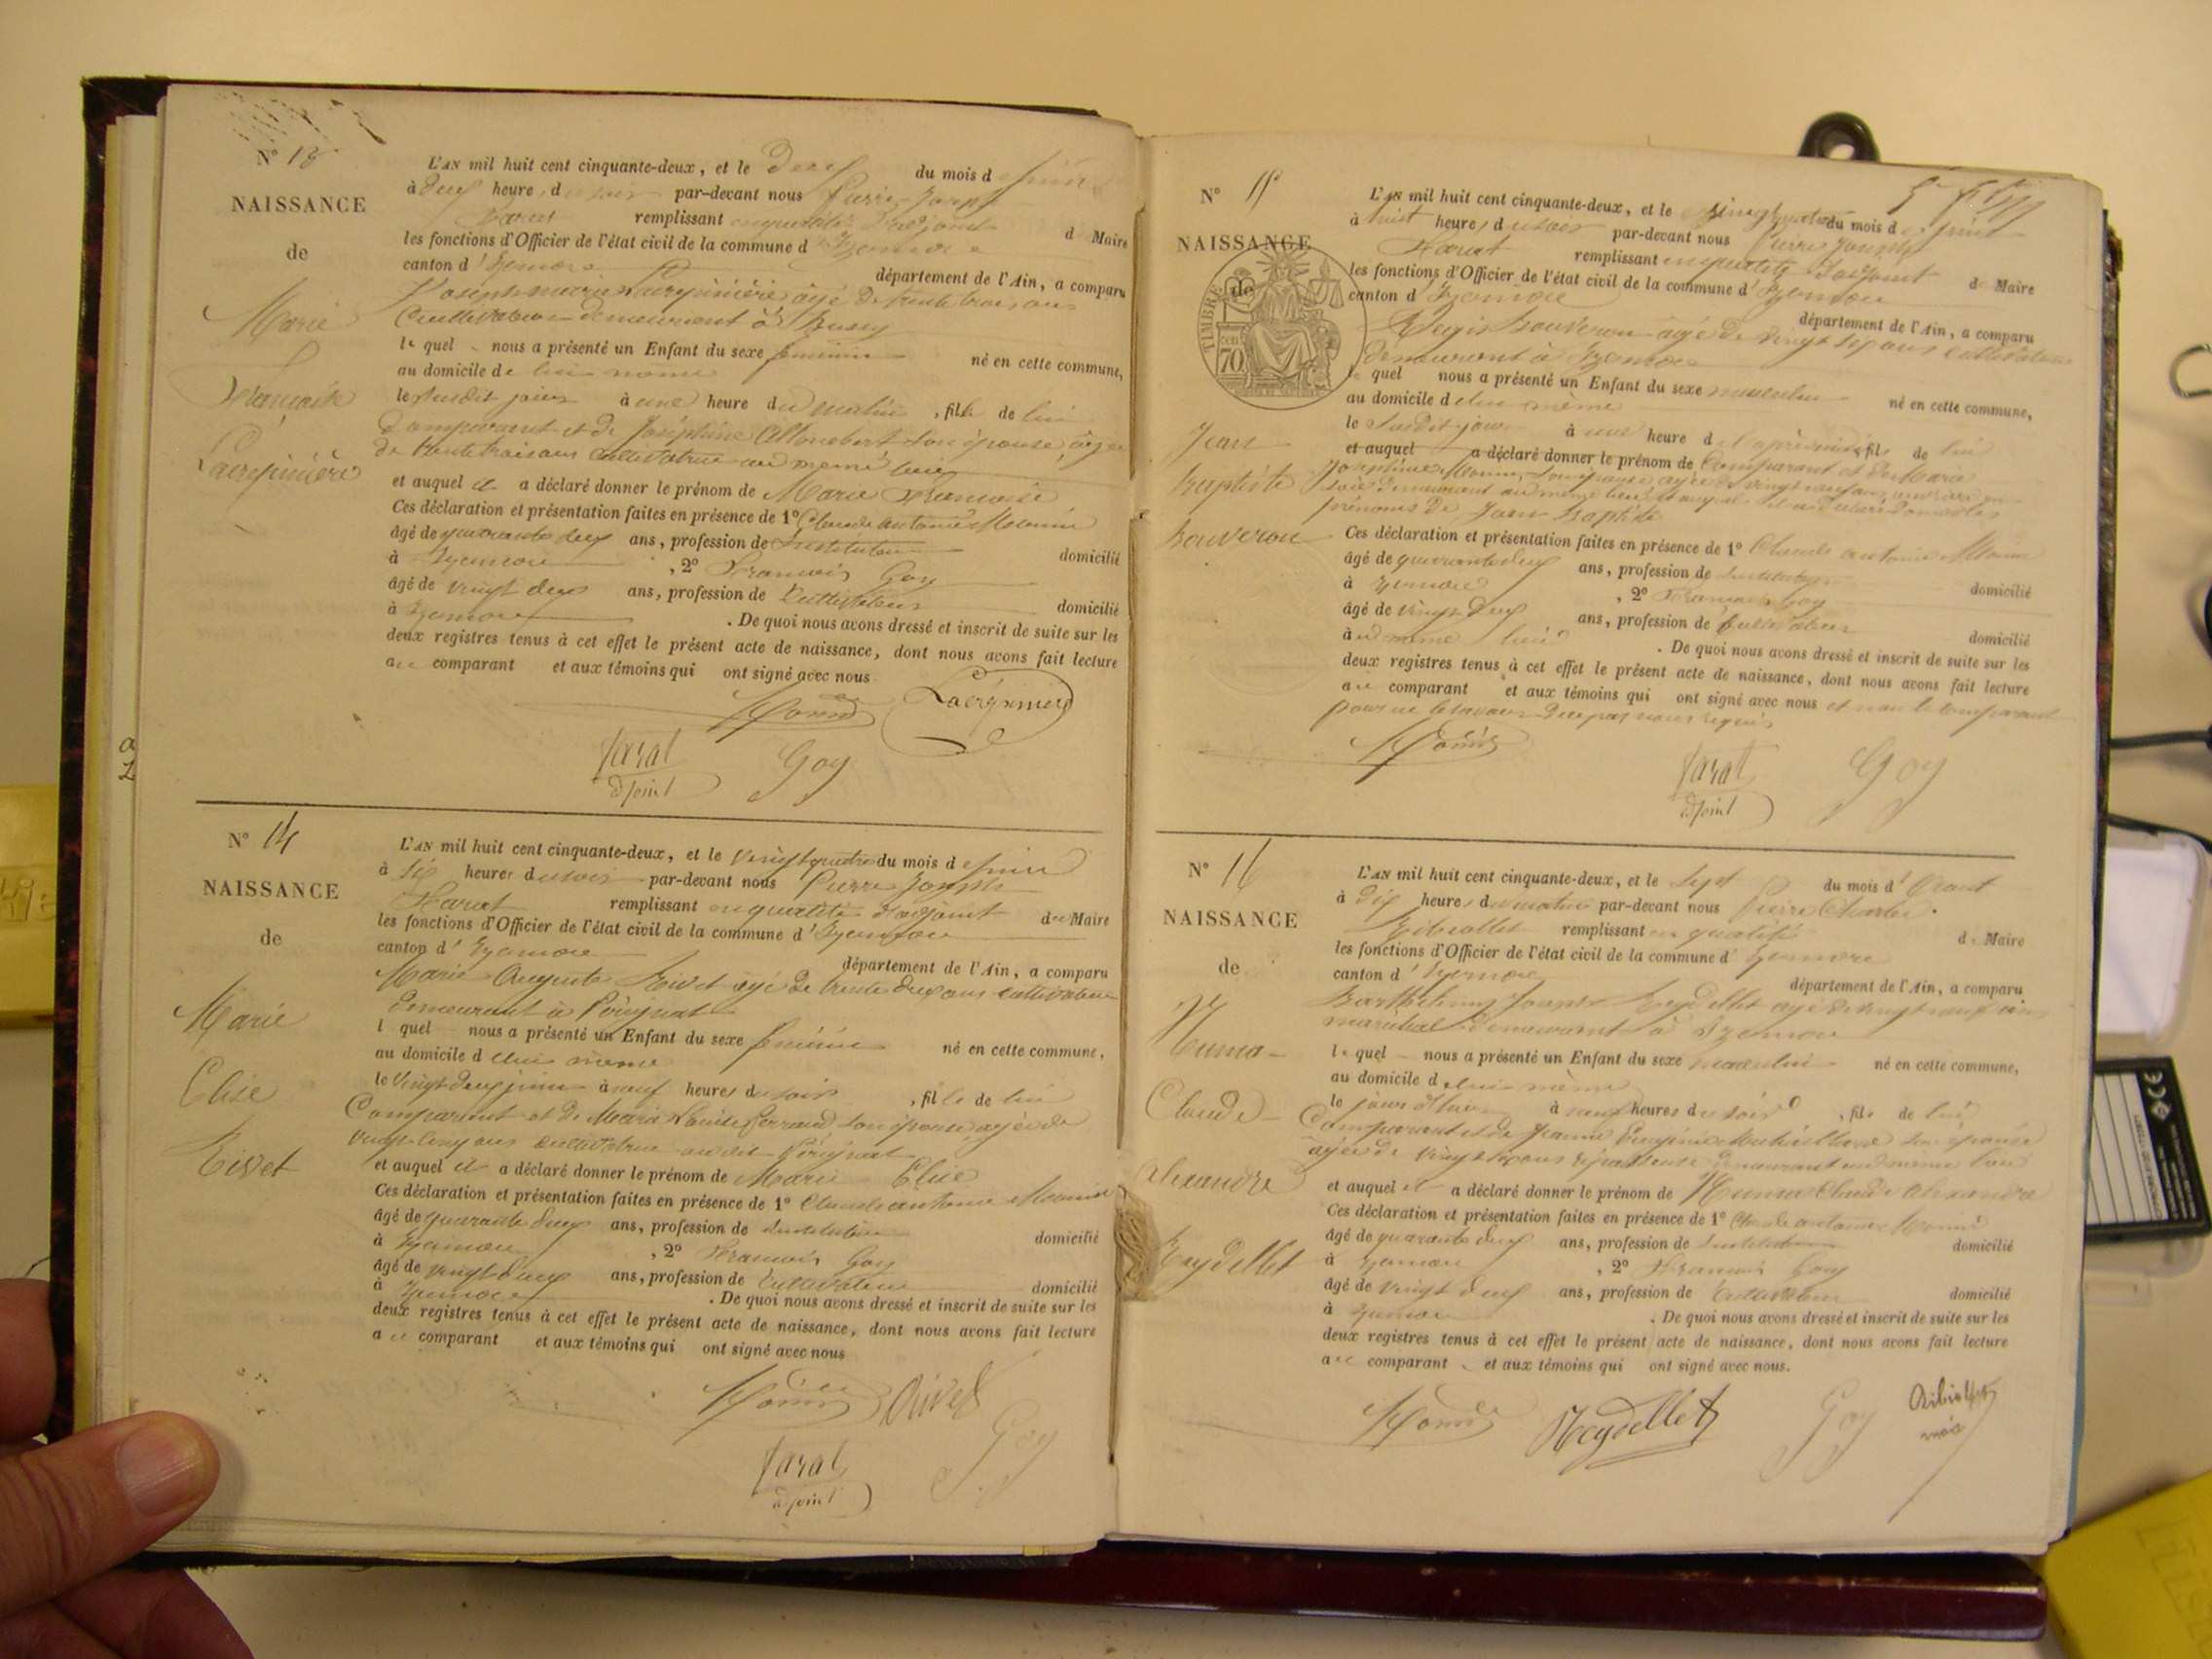 N° 13
NAISSANCE
de
Marie
Françoise
Lacrepinière
L'AN mil huit cent cinquante-deux, et le Deux du mois de juin
à deux heures du soir par-devant nous Pierre Joseph
Farat remplissant en qualité d'adjoint d Maire
les fonctions d'Officier de l'état civil de la commune d'Izernore
canton d'Izernore département de l'Ain, a comparu
Joseph marie Lacrepinière âgé de trente trois ans
Cultivateur demeurant à Bussy
le quel nous a présenté un Enfant du sexe féminin né en cette commune,
au domicile de lui même
le susdit jour à une heure du matin, fille de lui
Comparant et de Joséphine son épouse, âgée
de trente trois ans cultivatrice au même lieu
et auquel il a déclaré donner le prénom de Marie Françoise
Ces déclaration et présentation faites en présence de 1° Claude antoine
âgé de quarante deux ans, profession de Instituteur domicilié
à Izernore, 2° François Goy
âgé de vingt deux ans, profession de Cultivateur domicilié
à Izernore. De quoi nous avons dressé et inscrit de suite sur les
deux registres tenus à cet effet le présent acte de naissance, dont nous avons fait lecture
au comparant et aux témoins qui ont signé avec nous
Lacrepiniere
farat
adjoint
Goy
N° 14
NAISSANCE
de
Marie
Elise
Rivet
L'AN mil huit cent cinquante-deux, et le vingt quatre du mois de juin
à six heures du soir par-devant nous Pierre Joseph
Farat remplissant en qualité d'adjoint du Maire
les fonctions d'Officier de l'état civil de la commune d'Izernore
canton d'Izernore département de l'Ain, a comparu
Marie Auguste Rivet âgé de trente deux ans cultivateur
demeurant à Pérignat
l quel nous a présenté un Enfant du sexe féminin né en cette commune,
au domicile de lui même
le vingt deux juin à neuf heures du soir, fille de lui
Comparant et de Marie Louise Ferraud son épouse, âgée de
vingt cinq ans cultivatrice au dit Pérignat
et auquel il a déclaré donner le prénom de Marie Elise
Ces déclaration et présentation faites en présence de 1° Claude antoine
âgé de quarante deux ans, profession de Instituteur domicilié
à Izernore, 2° François Goy
âgé de vingt deux ans, profession de Cultivateur domicilié
à Izernore. De quoi nous avons dressé et inscrit de suite sur les
deux registres tenus à cet effet le présent acte de naissance, dont nous avons fait lecture
au comparant et aux témoins qui ont signé avec nous
Rivet
farat
adjoint
Goy
N° 15
NAISSANCE
de
TIMBRE
70
Jean
Baptiste
Bouveron
L'AN mil huit cent cinquante-deux, et le vingt quatre du mois de juin
à huit heures du soir par-devant nous Pierre Joseph
Farat remplissant en qualité d'adjoint d Maire
les fonctions d'Officier de l'état civil de la commune d'Izernore
canton d'Izernore département de l'Ain, a comparu
Regis Bouveron âgé de vingt six ans cultivateur
demeurant à Izernore
le quel nous a présenté un Enfant du sexe masculin né en cette commune,
au domicile de lui même
le susdit jour à une heure de l'après midi, fils de lui
et auquel a déclaré donner le prénom de Comparant et de Marie
Josephine son épouse, âgée de vingt neuf ans, ouvrière en
soie demeurant au même lieu et auquel il a déclaré donner les
prénoms de Jean Baptiste
Ces déclaration et présentation faites en présence de 1° Claude antoine
âgé de quarante deux ans, profession de Instituteur domicilié
à Izernore, 2° François Goy
âgé de vingt deux ans, profession de Cultivateur domicilié
à au même lieu. De quoi nous avons dressé et inscrit de suite sur les
deux registres tenus à cet effet le présent acte de naissance, dont nous avons fait lecture
au comparant et aux témoins qui ont signé avec nous et non le comparant
pour ne le savoir de ce par nous requis
farat
adjoint
Goy
N° 16
NAISSANCE
de
Numa
Claude
Alexandre
Reydellet
L'AN mil huit cent cinquante-deux, et le Sept du mois d'Aout
à dix heures du matin par-devant nous Pierre Charles
Ribiollet remplissant en qualité d Maire
les fonctions d'Officier de l'état civil de la commune d'Izernore
canton d'Izernore département de l'Ain, a comparu
Barthélemy Joseph Reydellet âgé de vingt neuf ans
maréchal demeurant à Izernore
le quel nous a présenté un Enfant du sexe masculin né en cette commune,
au domicile de lui même
le jour d'hier à neuf heures du soir, fils de lui
Comparant et de Jeanne Eugénie son épouse
âgée de vingt six ans repasseuse demeurant au même lieu
et auquel il a déclaré donner le prénom de Numa Claude Alexandre
Ces déclaration et présentation faites en présence de 1° Claude antoine
âgé de quarante deux ans, profession de Instituteur domicilié
à Izernore, 2° François Goy
âgé de vingt deux ans, profession de Cultivateur domicilié
à Izernore. De quoi nous avons dressé et inscrit de suite sur les
deux registres tenus à cet effet le présent acte de naissance, dont nous avons fait lecture
au comparant et aux témoins qui ont signé avec nous.
Reydellet
Goy
Ribiollet